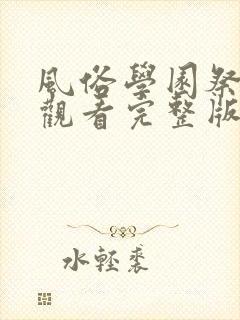 風俗學園祭
觀看完整版
水輕裘